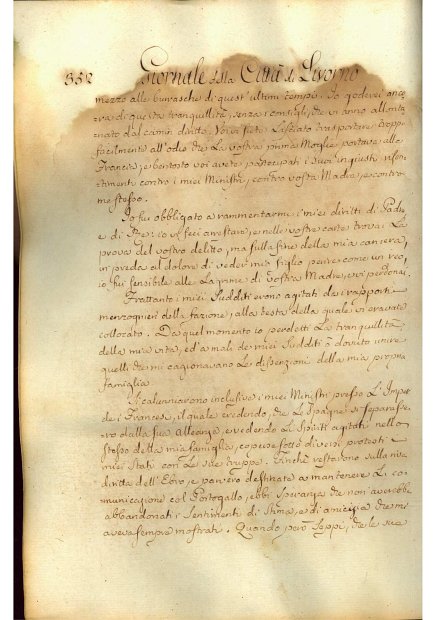 352 Giornale della Città di Livorno
mezzo alle burrasche di quest'ultimi tempi. Io goderei anco-
ra di questa tranquillità, senza i consigli, che vi anno allonta-
nato dal camin diritto. Voi vi siete lasciato trasportare troppo
facilmente all'odio che la vostra prima Moglie portava alla
Francia, e bentosto voi avete partecipati i suoi ingiusti risen-
timenti contro i miei Ministri, contro vostra Madre, e contro
me stesso.
Io fui obbligato a rammentarmi i miei diritti di Padre
e di Re: io vi feci arrestare, e nelle vostre carte trovai la
prova del vostro delitto, ma sulla fine della mia carriera,
in preda al dolore di veder mio figlio perire come un reo,
io fui sensibile alle lagrime di vostra Madre, e vi perdonai.
Frattanto i miei Sudditi erano agitati da i rapporti
menzogneri della fazione, alla testa della quale vi eravate
collocato. Da quel momento io perdetti la tranquillità
della mia vita, ed a mali de miei Sudditi ò dovuto unire
quelli che mi cagionavano le dissenzioni della mia propria
famiglia.
Si calunniarono inclusive i miei Ministri presso l'Impe
de i Francesi, il quale credendo, che le Spagne si separasse-
ro dalla sua Alleanza, e vedendo li spiriti agitati nello
stesso della mia famiglia, coperse sotto diversi pretesti i
miei Stati con le sue truppe. Finchè restarono sulla riva
diritta dell'Ebro, e parvero destinate a mantenere la co-
municazione col Portogallo, ebbi speranza che non averebbe
abbandonati i sentimenti di stima, e di amicizia che mi
aveva sempre mostrati. Quando però seppi, che le sue